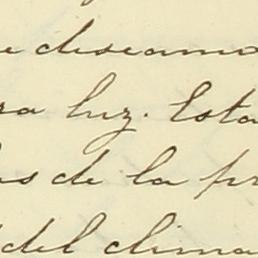 e deseamo
ra luz. Esta
as de la pr
del clima